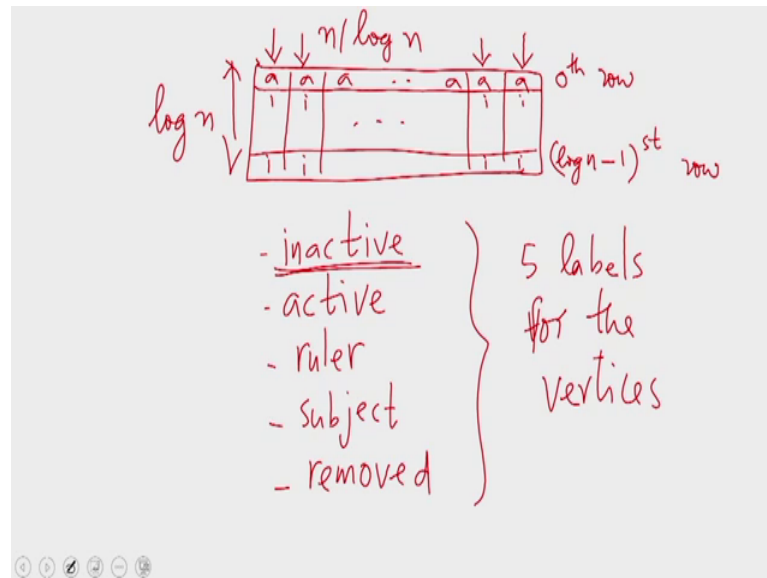 n/log n
a a a .. a a a 0th row
i i i i
log n ...
i i i i (log n-1)st row
- inactive
- active
- ruler
- subject
- removed
5 labels
for the
vertices